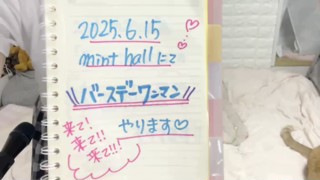 2025.6.15
mint hallにて
\\バースデーワンマン//
やります♡
来て!
来て!!
来て!!!